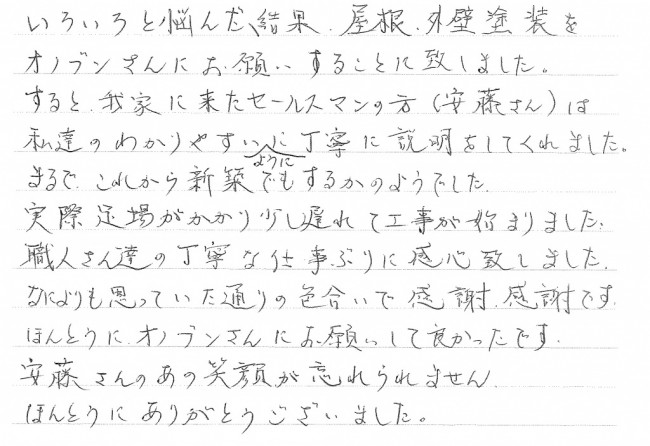 いろいろと悩んだ、結果、屋根、外壁塗装を
オノブンさんにお願いすることに致しました。
すると、我家に来たセールスマンの方（安藤さん）は
私達のわかりやすいように丁寧に説明をしてくれました。
まるで、これから新築でもするかのようでした。
実際足場がかかり少し遅れて工事が始まりました。
職人さん達の丁寧な仕事ぶりに感心致しました。
なによりも思っていた通りの色合いで感謝、感謝です。
ほんとうに、オノブンさんにお願いして良かったです。
安藤さんのあの笑顔が忘れられません。
ほんとうにありがとうございました。